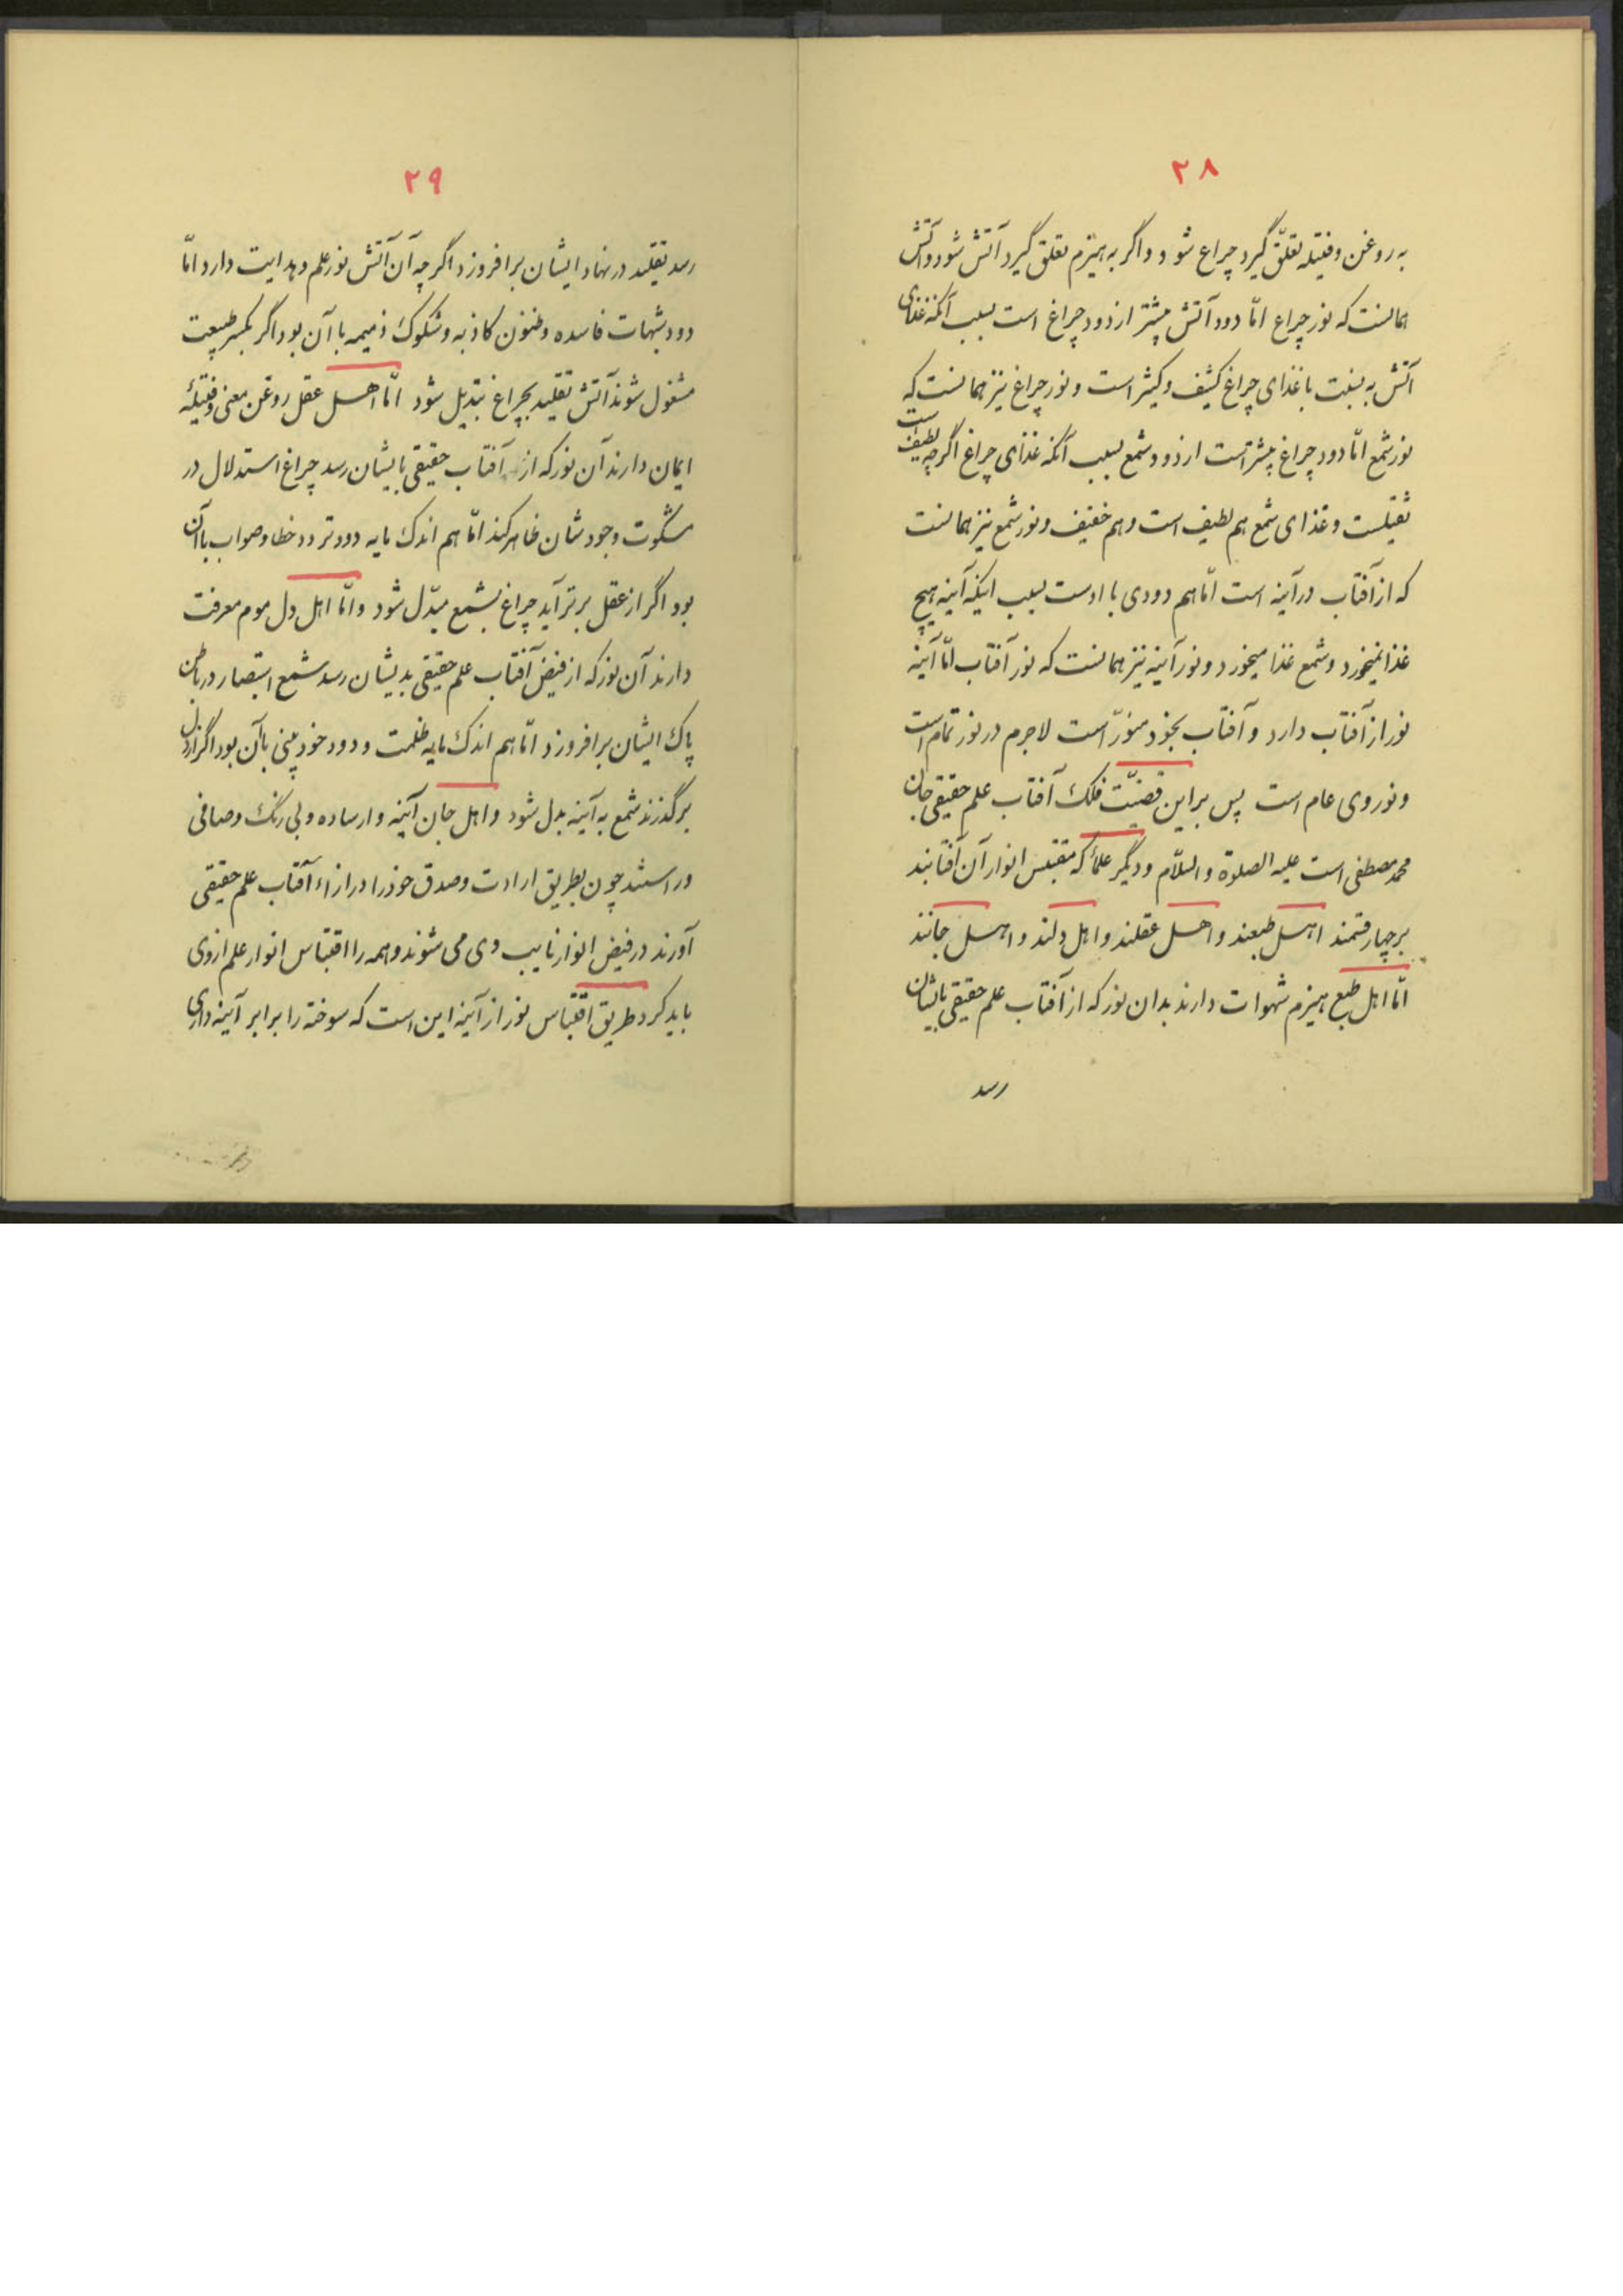 ۲۸
به روغن و فتیله تعلّق گیرد چراغ شود و اگر به هیزم تعلق گیرد آتش شود و آتش
همانست که نور چراغ امّا دود آتش بیشتر از دود چراغ است بسبب آنکه غذای
آتش به نسبت با غذای چراغ کثیف و کثیر است و نور چراغ نیز همانست که
نور شمع امّا دود چراغ بیشتر است از دود شمع بسبب آنکه غذای چراغ اگرچه لطیف است
ثقیلست و غذای شمع هم لطیف است و هم خفیف و نور شمع نیز همانست
که از آفتاب در آینه است امّا هم دودی با اوست بسبب اینکه آینه هیچ
غذا نمیخورد و شمع غذا میخورد و نور آینه نیز همانست که نور آفتاب امّا آینه
نور از آفتاب دارد و آفتاب بخود منوّر است لاجرم در نور تمام است
و نور وی عام است پس براین قضیّت فلک آفتاب علم حقیقی جان
محمد مصطفی است علیه الصلوة والسّلام و دیگر علما که مقتبس انوار آن آفتابند
بر چهار قسمند اهل طبعند و اهل عقلند و اهل دلند و اهل جانند
امّا اهل طبع هیزم شهوات دارند بدان نور که از آفتاب علم حقیقی بایشان
رسد
۲۹
رسد تقلید در نهاد ایشان برافروزد اگر چه آن آتش نور علم و هدایت دارد امّا
دود شبهات فاسده و ظنون کاذبه و شکوک ذمیمه با آن بود اگر بکسر طبیعت
مشغول شوند آتش تقلید بچراغ تبدیل شود امّا اهل عقل روغن معنی و فتیلهٔ
ایمان دارند آن نور که از آفتاب حقیقی بایشان رسد چراغ استدلال در
مشکوت وجودشان ظاهر کند امّا هم اندک مایه دود تردد خطا و صواب با آن
بود اگر از عقل برتر آید چراغ بشمع مبدّل شود و امّا اهل دل موم معرفت
دارند آن نور که از فیض آفتاب علم حقیقی بدیشان رسد شمع استبصار در باطن
پاک ایشان برافروزد امّا هم اندک مایه ظلمت و دود خودبینی با آن بود اگر از دل
برگذرند شمع به آینه بدل شود و اهل جان آینه وار ساده و بی رنگ و صافی
وراستند چون بطریق ارادت و صدق خود را در ازاء آفتاب علم حقیقی
آورند در فیض انوار نایب وی می شوند و همه را اقتباس انوار علم از وی
باید کرد طریق اقتباس نور از آینه این است که سوخته را برابر آینه داری